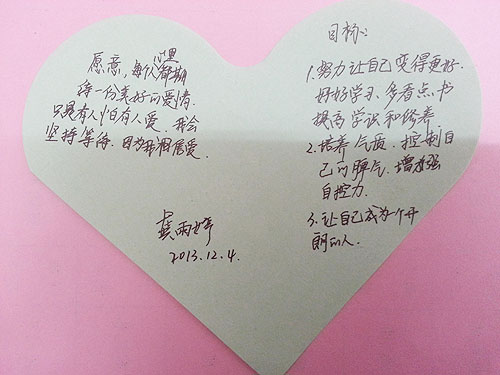 愿意,每个人心里都期
待一份美好的爱情.
只是有人怕有人爱.我会
坚持等待.因为我相信爱.
龚雨婷
2013.12.4.
目标:
1.努力让自己变得更好.
好好学习、多看点书
提高学识和修养
2.培养气质.控制自
己的脾气.增强
自控力.
3.让自己成为一个开
朗的人.